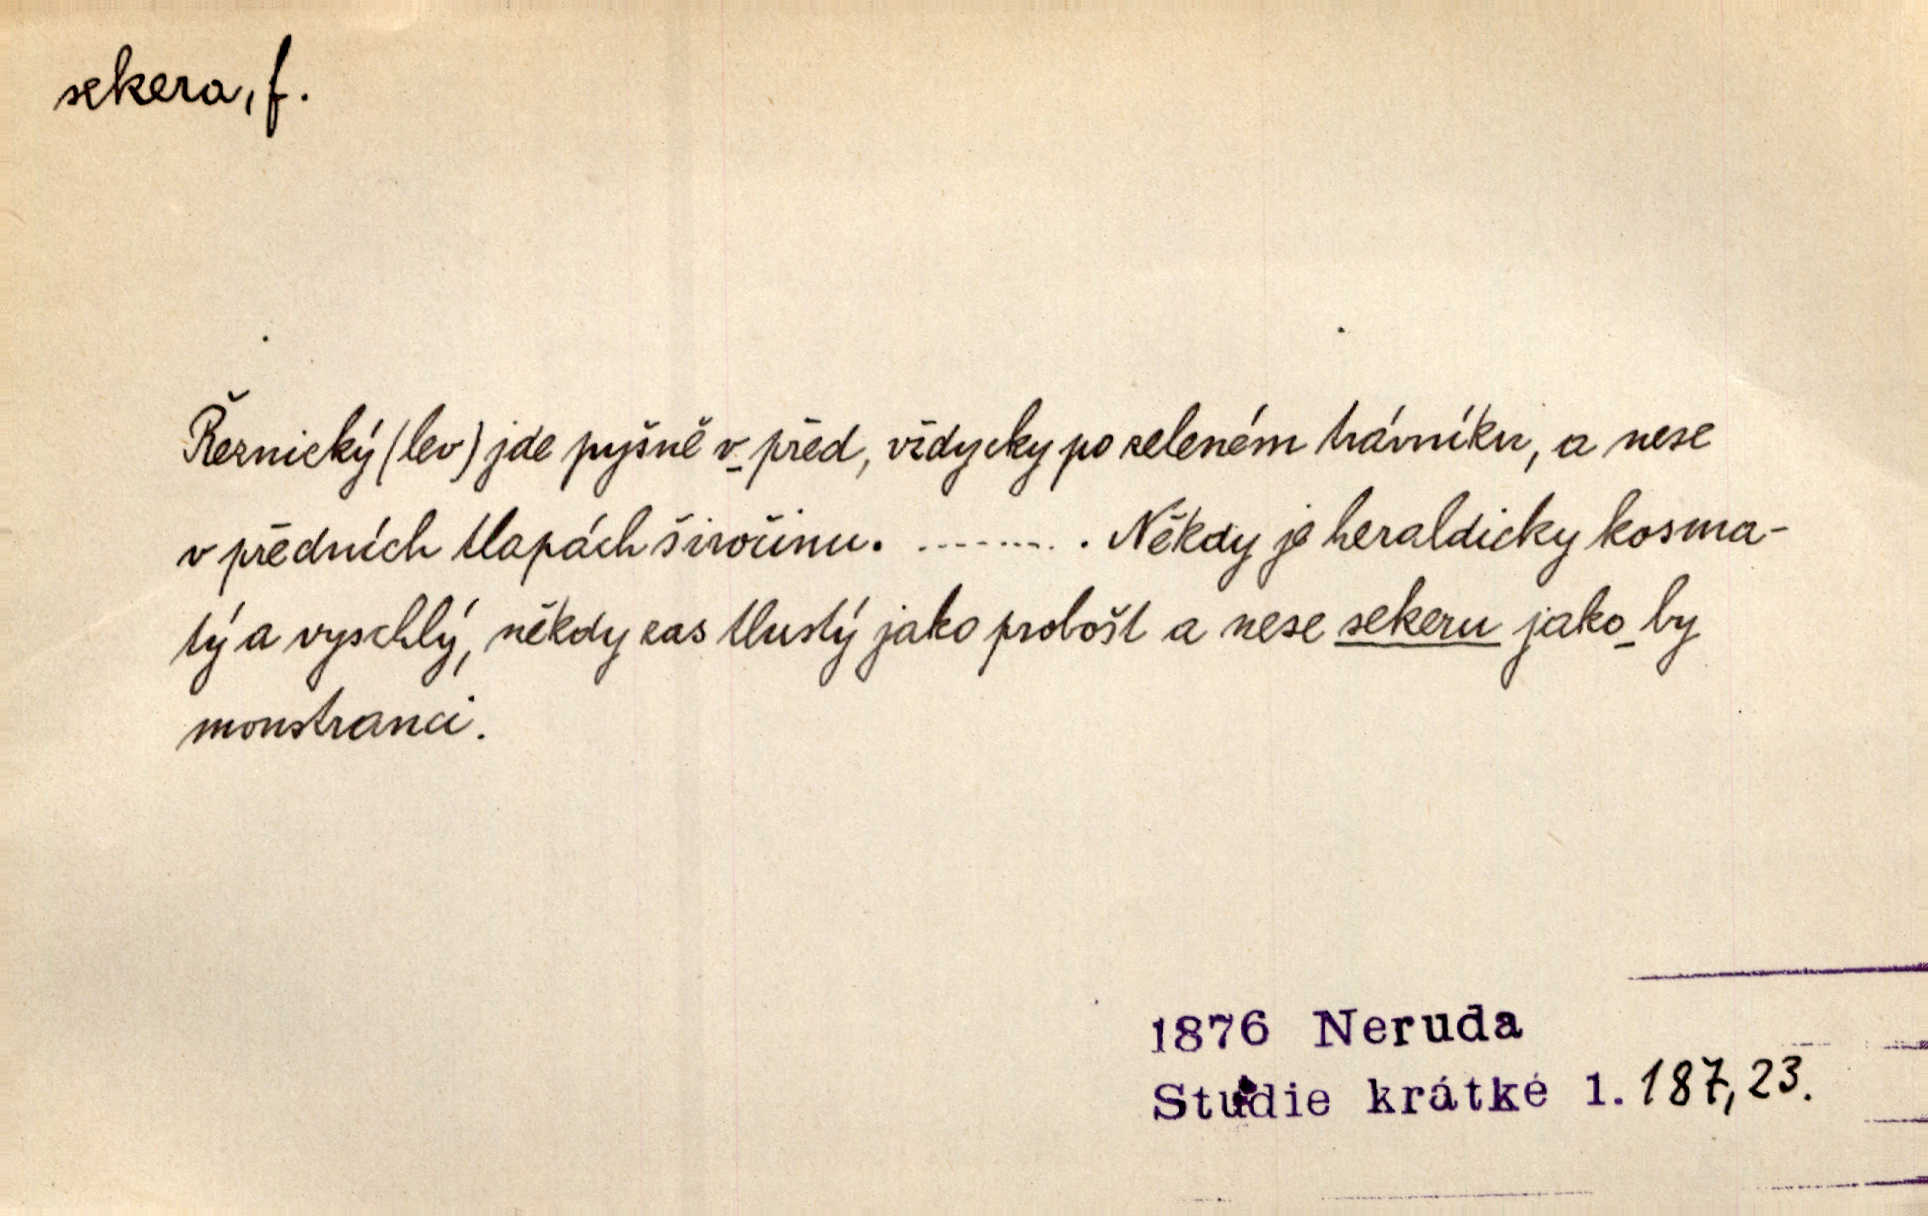 sekera, f.
Řeznický (lev) jde pyšně v před, vždycky po zeleném trávníku, a nese
v předních tlapách širočinu. ......... . Někdy je heraldicky kosma-
tý a vyschlý, někdy zas tlustý jako probošt a nese sekeru jako by
monstranci.
1876 Neruda
Studie krátké 1. 187, 23.